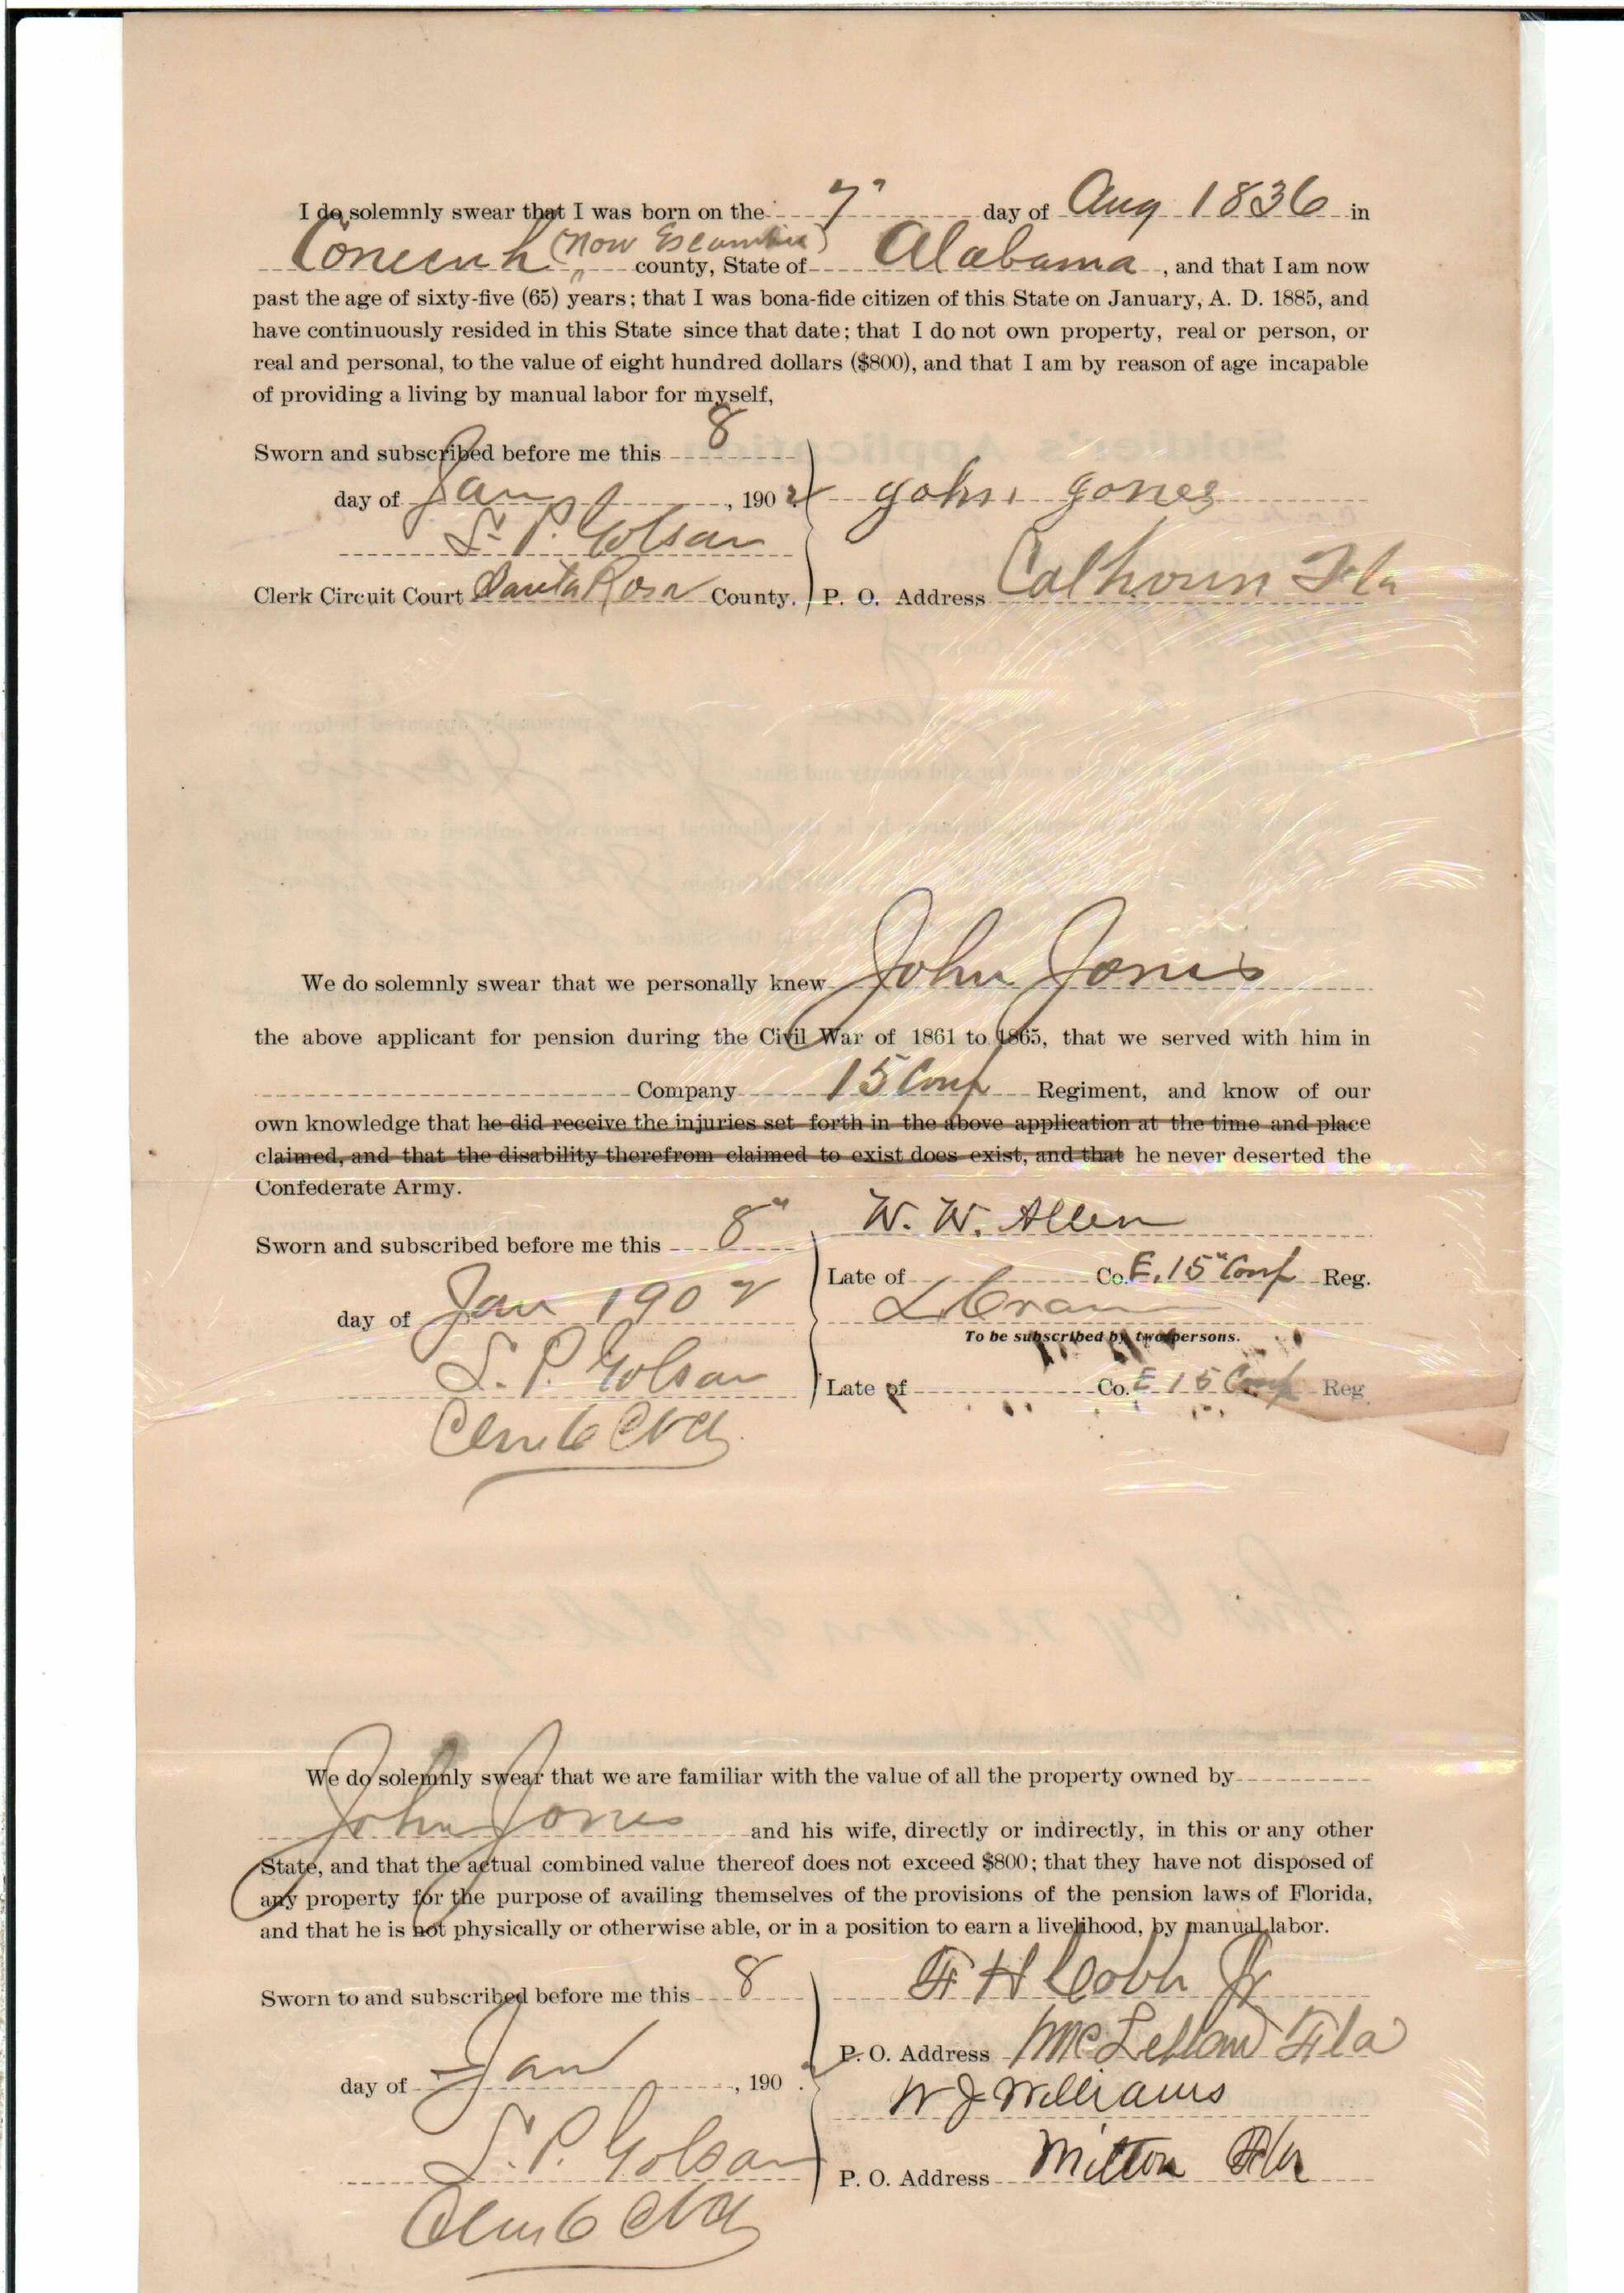 I do solemnly swear that I was born on the 7" day of Aug 1836 in
Conecuh (now Escambia) county, State of Alabama, and that I am now
past the age of sixty-five (65) years; that I was bona-fide citizen of this State on January, A. D. 1885, and
have continuously resided in this State since that date; that I do not own property, real or person, or
real and personal, to the value of eight hundred dollars ($800), and that I am by reason of age incapable
of providing a living by manual labor for myself,
Sworn and subscribed before me this 8
day of Jan, 1902 John Jones
S. P. Golsan
Clerk Circuit Court Santa Rosa County. P. O. Address Calhoun Fla
We do solemnly swear that we personally knew John Jones
the above applicant for pension during the Civil War of 1861 to 1865, that we served with him in
Company 15 Conf Regiment, and know of our
own knowledge that he did receive the injuries set forth in the above application at the time and place
claimed, and that the disability therefrom claimed to exist does exist, and that he never deserted the
Confederate Army.
W. W. Allen
Sworn and subscribed before me this 8"
Late of Co. E, 15" Conf Reg.
day of Jan 1902
To be subscribed by two persons.
S. P. Golsan
Late of Co. E 15 Conf Reg
We do solemnly swear that we are familiar with the value of all the property owned by
John Jones and his wife, directly or indirectly, in this or any other
State, and that the actual combined value thereof does not exceed $800; that they have not disposed of
any property for the purpose of availing themselves of the provisions of the pension laws of Florida,
and that he is not physically or otherwise able, or in a position to earn a livelihood, by manual labor.
Sworn to and subscribed before me this 8 F H Cobb Jr
P. O. Address McLellan Fla
day of Jan, 190
W J Williams
S. P. Golsan
P. O. Address Milton Fla